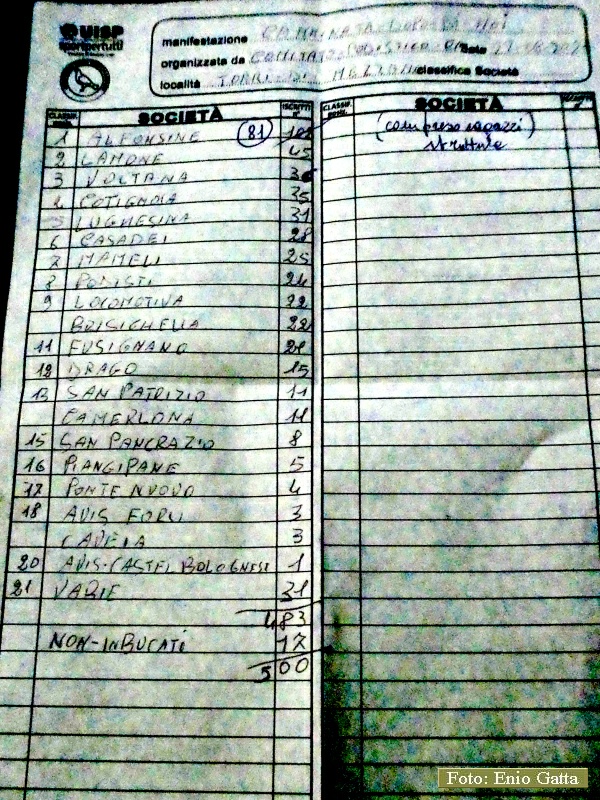 UISP
sportpertutti
manifestazione CAMMINATA
organizzata da COMITATO PODISTICO Data
località TORRI DI MEZZANO classifica Società
CLASSIF. SOCIETÀ ISCRITTI n° CLASSIF. SOCIETÀ
1 ALFONSINE 81 102 (compreso ragazzi)
2 LAMONE 45 strutture
3 VOLTANA 36
4 COTIGNOLA 35
5 LUGHESINA 31
6 CASADEI 28
7 MAMELI 25
8 PODISTI 24
9 LOCOMOTIVA 22
BRISIGHELLA 22
11 FUSIGNANO 21
12 DRAGO 15
13 SAN PATRIZIO 11
CAMERLONA 11
15 SAN PANCRAZIO 8
16 PIANGIPANE 5
17 PONTE NUOVO 4
18 AVIS FORLI 3
3
20 AVIS-CASTEL BOLOGNESE 1
21 VARIE 31
483
NON-INBUCATI 17
500
Foto: Enio Gatta